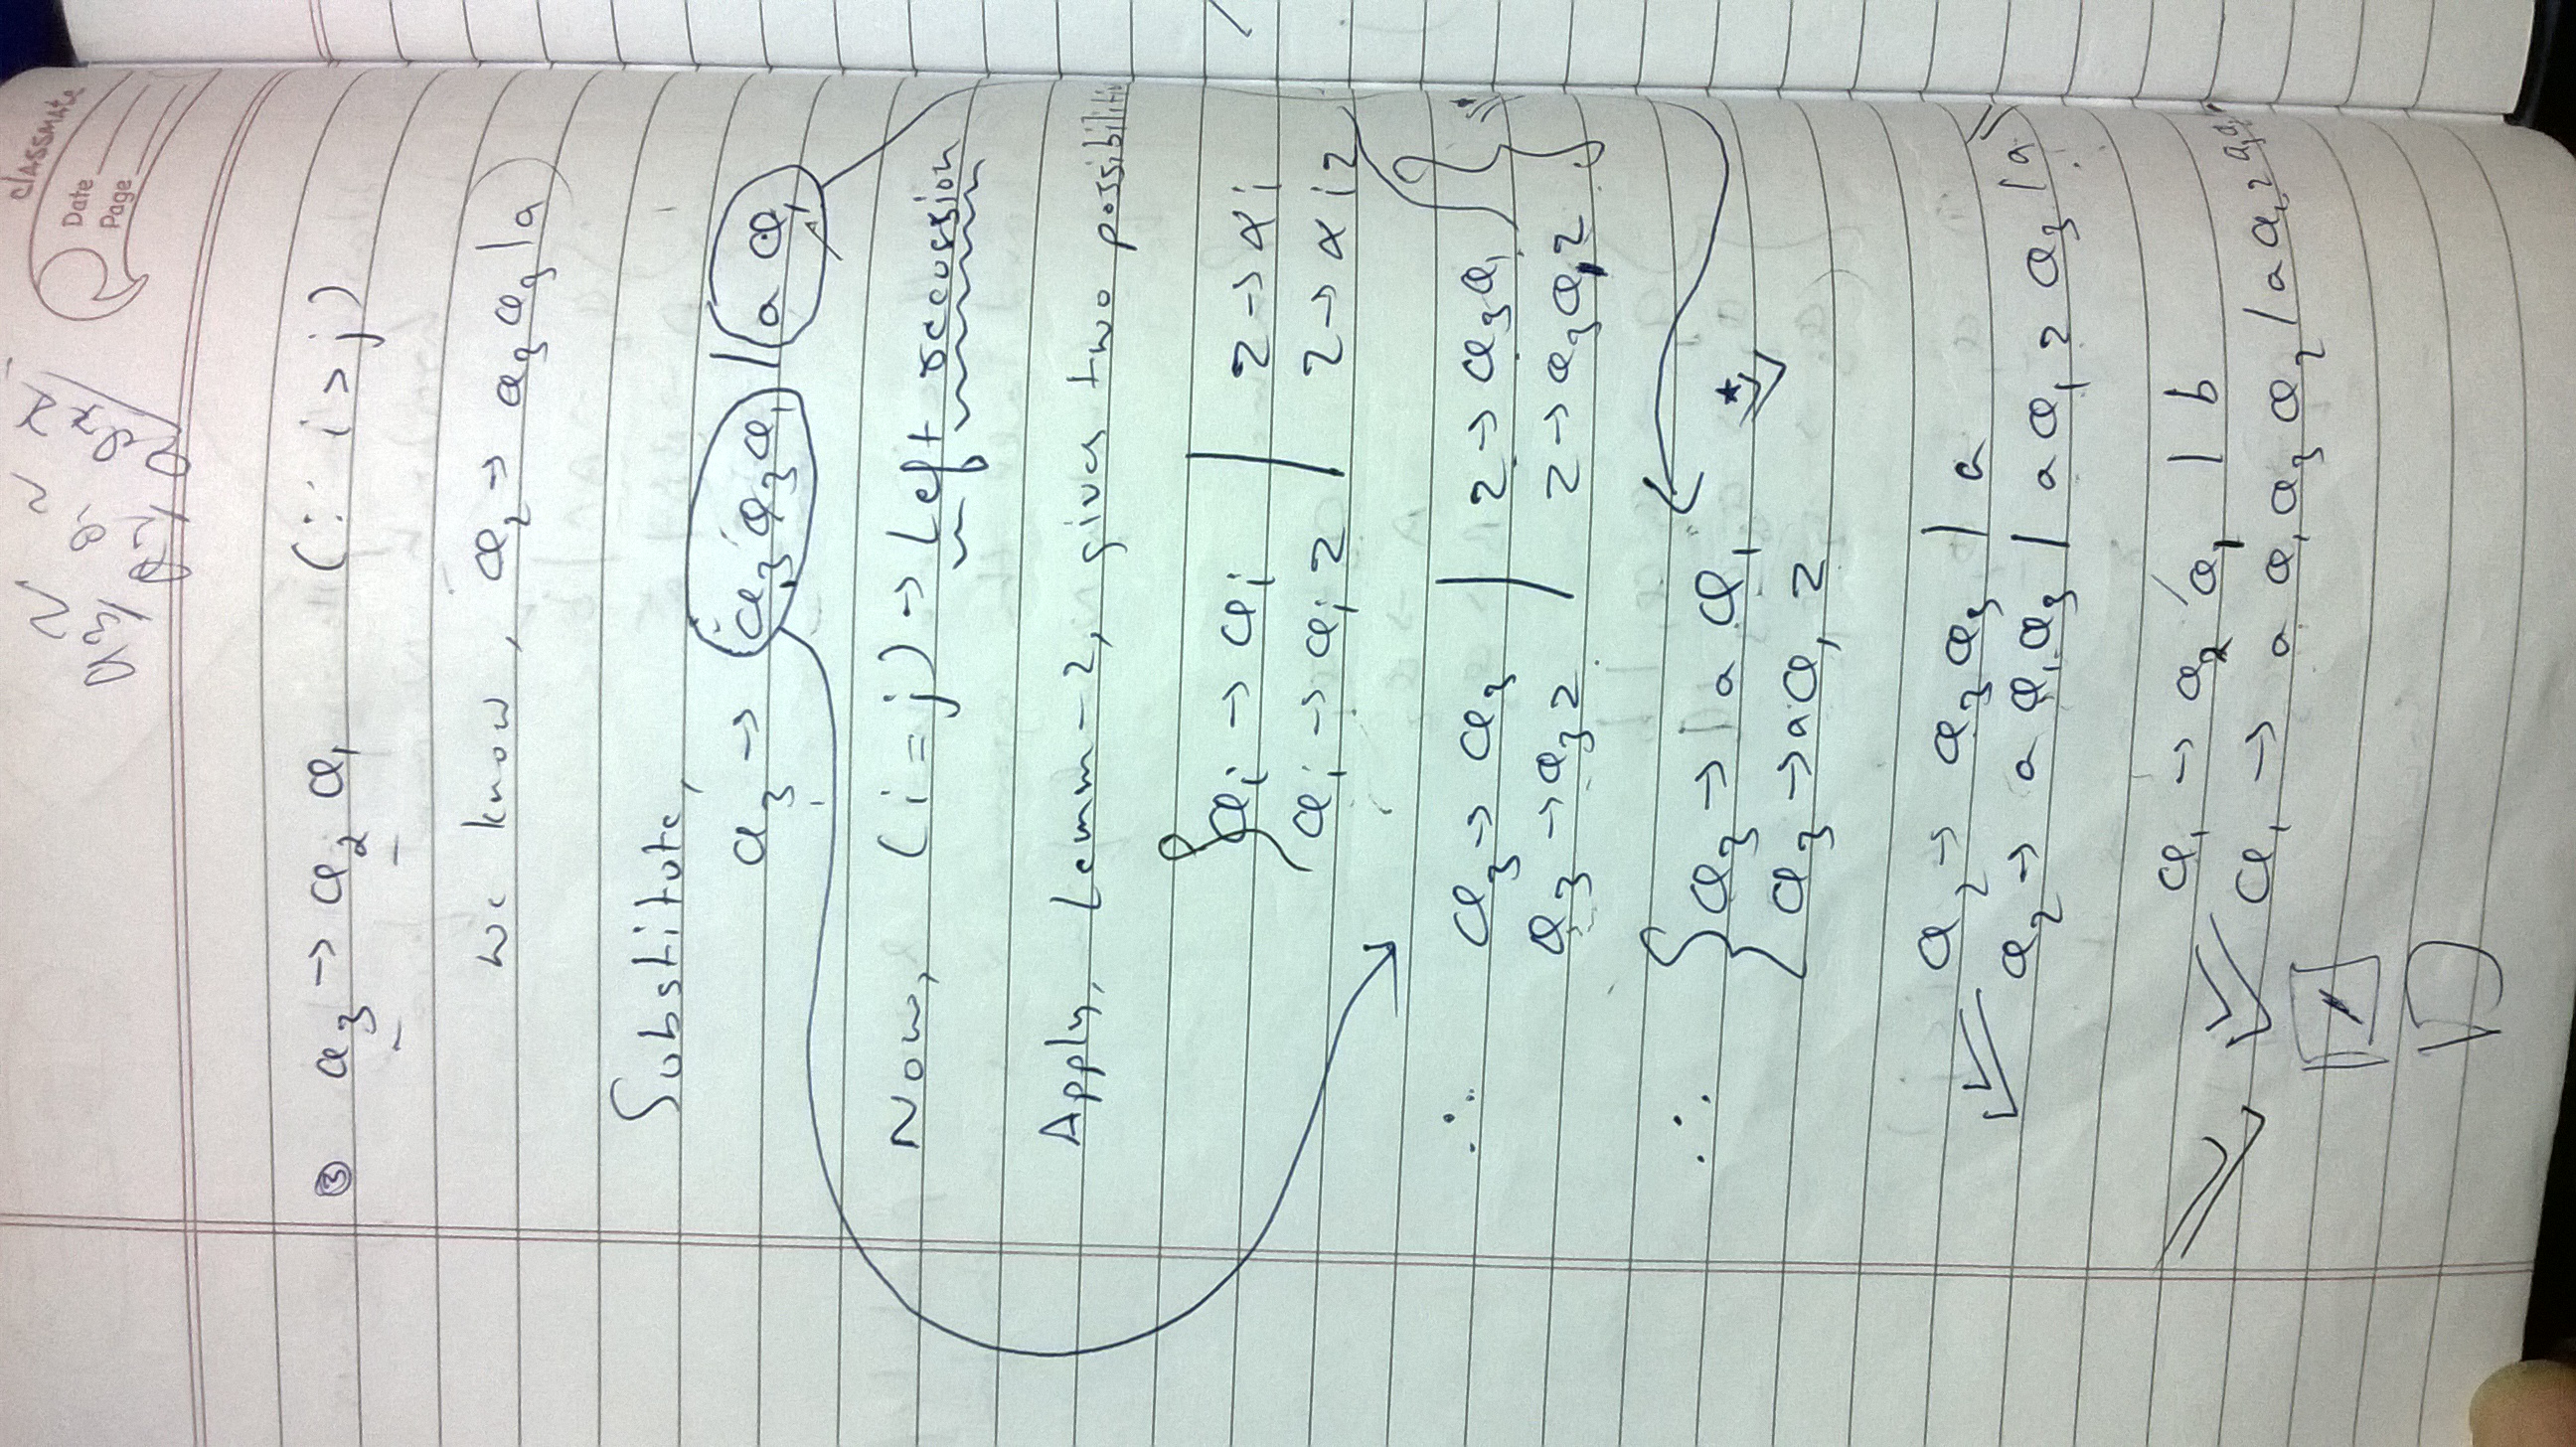 classmate
Date
Page
③ a₃ → a₂ a₁ (∵ i > j)
we know, a₂ → a₃ a₃ | a
Substitute,
a₃ → a₃ a₃ a₁ | a a₁
Now, (i = j) → Left recussion
Apply, Lemm-2, gives two
aᵢ → aᵢ | z → αᵢ
aᵢ → aᵢ z | z → αᵢ z
∴ a₃ → a₃ | z → a₃ a₁
a₃ → a₃ z | z → a₃ a₁ z
∴ a₃ → a a₁
a₃ → a a₁ z
a₂ → a₃ a₃ | a
a₂ → a a₁ a₃ | a a₁ z a₃ | a
a₁ → a₂ a₁ | b
a₁ → a a₁ a₃ a₂ | a a₁ z